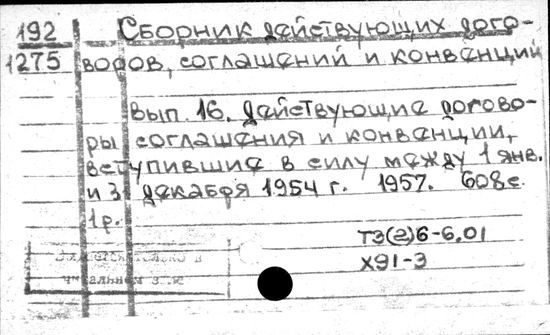 192 Сборник действующих дого-
1275 воров, соглашений и конвенций
Вып. 16. Действующие догово-
ры соглашения и конвенции,
вступившие в силу между 1 янв.
и 31 декабря 1954 г. 1957. 608 с.
1 р.
Т3(2)6-6.01
Х91-3